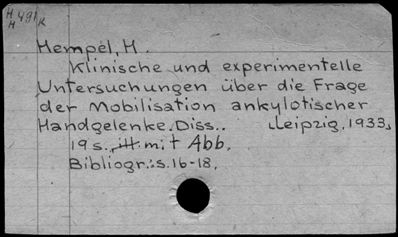 H 491
H K
Hempel, H.
Klinische und experimentelle
Untersuchungen über die Frage
der Mobilisation ankylotischer
Handgelenke. Diss.. Leipzig, 1933,
19 s. mit Abb.
Bibliogr.: s. 16-18.